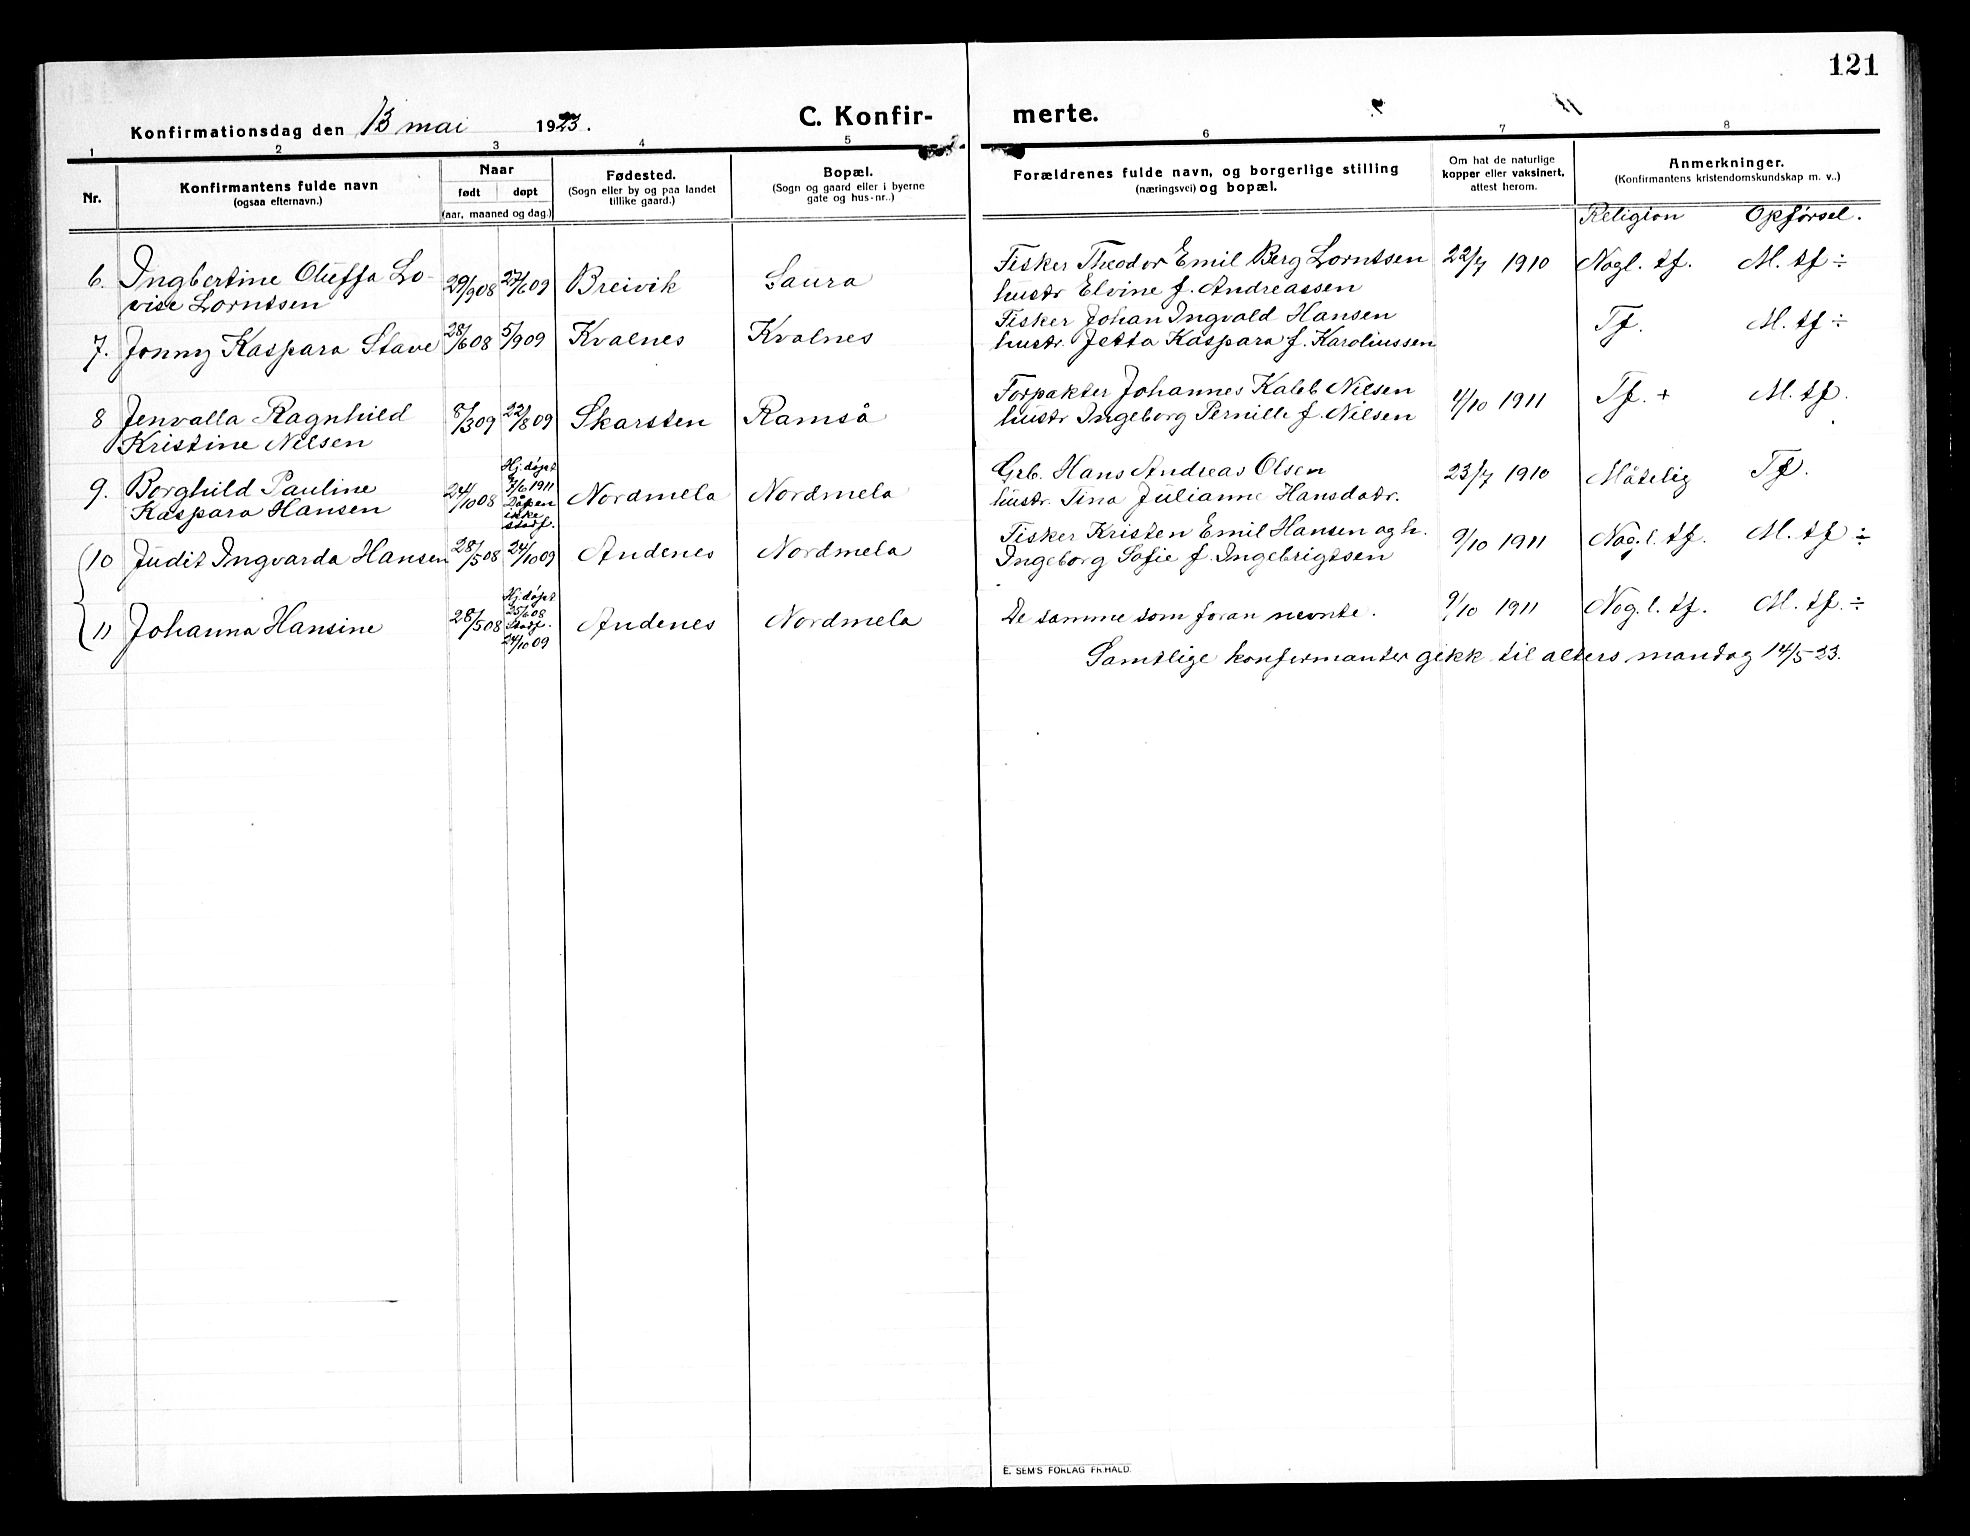 121
Konfirmationsdag den 13 mai 1923.
C. Konfirmerte.
1 2 3 4 5 6 7 8
Nr.
Konfirmantens fulde navn
(ogsaa efternavn.)
Naar
født døpt
(aar, maaned og dag.)
Fødested.
(Sogn eller by og paa landet
tillike gaard.)
Bopæl.
(Sogn og gaard eller i byerne
gate og hus-nr..)
Forældrenes fulde navn, og borgerlige stilling
(næringsvei) og bopæl.
Om hat de naturlige
kopper eller vaksinert,
attest herom.
Anmerkninger.
(Konfirmantens kristendomskundskap m. v..)
Religion Opførsel.
6. Ingbertine Oluffa Lo-
vise Lorntsen
29/9 08 27/6 09 Breivik Saura
Fisker Theodor Emil Berg Lorntsen
hustr Elvine f. Andreassen
22/7 1910 Nogl. tf. M. tf ÷
7. Jonny Kaspara Stave
28/6 08 5/9 09 Kvalnes Kvalnes
Fisker Johan Ingvald Hansen
hustr. Jetta Kaspara f. Karoliussen
Tf. M. tf ÷
8 Jenvalla Ragnhild
Kristine Nilsen
8/3 09 22/8 09 Skarsten Ramså
Forpakter Johannes Kaleb Nilsen
hustr Ingeborg Pernille f. Nilsen
4/10 1911 Tf. + M. tf.
9. Borghild Pauline
Kaspara Hansen
24/10 08
Hj. døpt
7/6 1911
Dåpen
ikke
stadf.
Nordmela Nordmela
Grb. Hans Andreas Olsen
hustr. Tina Julianne Hansdatr.
23/7 1910 Måtelig Tf.
10 Judit Ingvarda Hansen
28/5 08 24/10 09 Andenes Nordmela
Fisker Kristen Emil Hansen og h.
Ingeborg Sofie f. Ingebrigtsen
9/10 1911 Nog.l. tf. M. tf ÷
11 Johanna Hansine
28/5 08
Hj. døpt
25/6 08
Stadf.
24/10 09
Andenes Nordmela
De samme som foran nevnte.
9/10 1911 Nog.l. tf. M. tf. ÷
Samtlige konfirmanter gikk til alters mandag 14/5 23.
E. SEM'S FORLAG FR.HALD.